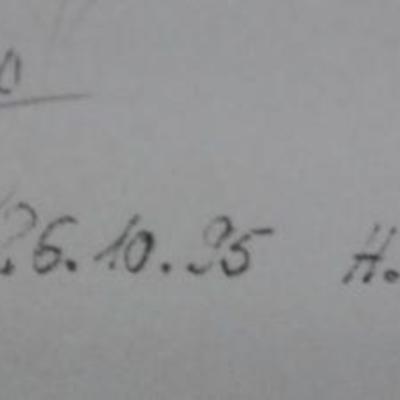 26.10.95 H.